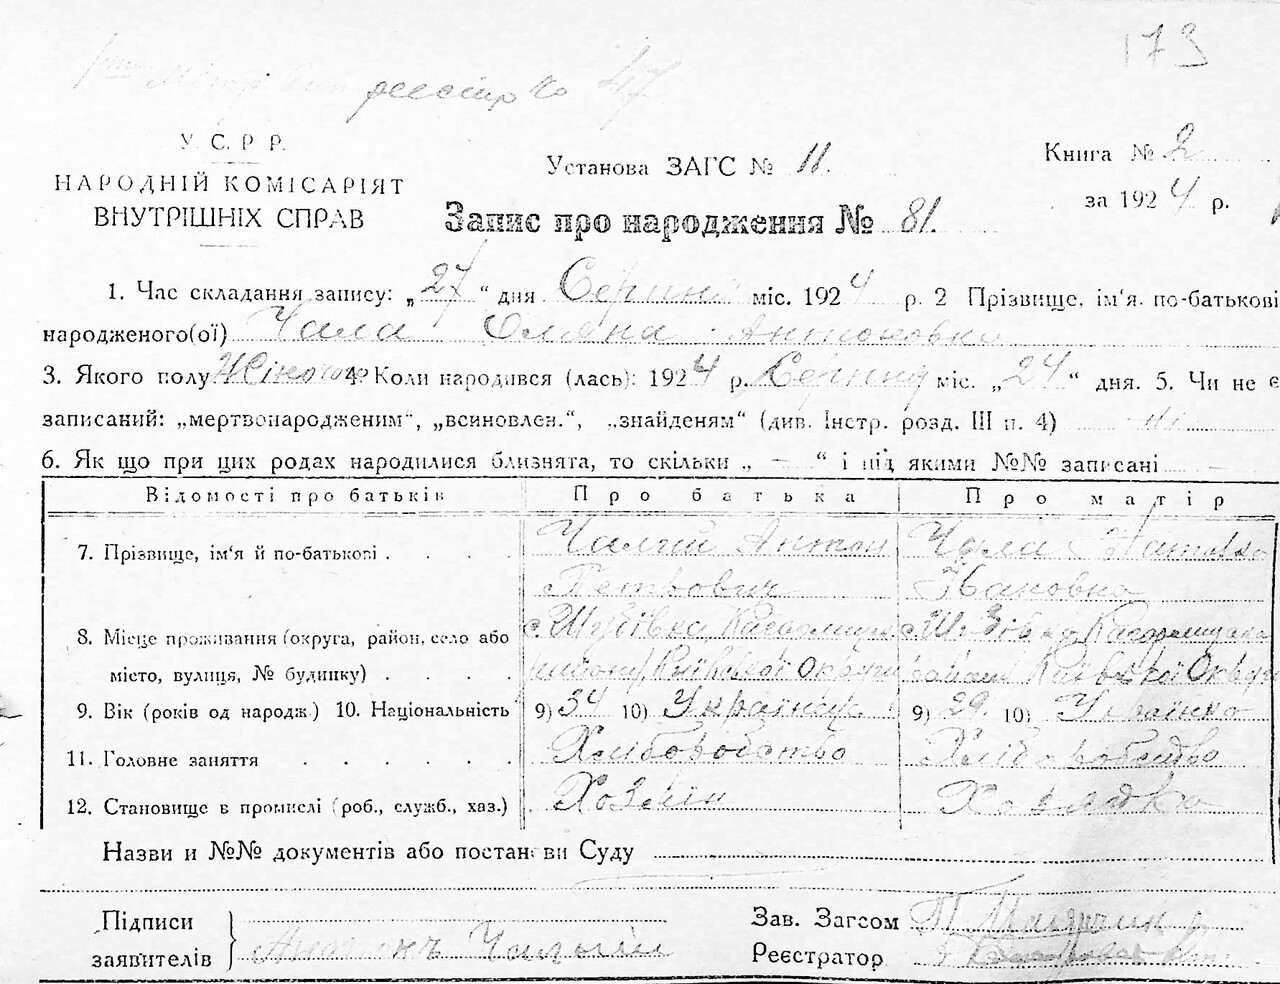 173
реєстр № 47
У. С. Р. Р.
НАРОДНІЙ КОМІСАРІЯТ
ВНУТРІШНІХ СПРАВ
Установа ЗАГС № 11.
Книга № 2
за 1924 р.
Запис про народження № 81.
1. Час складання запису: „27“ дня Серпня міс. 1924 р. 2 Прізвище, ім'я. по-батькові
народженого(ої) Чала Оляна Антоновна
3. Якого полу Жіночого 4. Коли народився (лась): 1924 р. Серпня міс. „24“ дня. 5. Чи не є
записаний: „мертвонародженим“, „всиновлен.“, „знайденям“ (див. Інстр. розд. III п. 4) ні
6. Як що при цих родах народилися близнята, то скільки „ — “ і під якими №№ записані —
Відомості про батьків Про батька Про матір
7. Прізвище, ім'я й по-батькові . . . . Чалий Антон Чала
Петрович Ивановна
8. Місце проживання (округа, район, село або с. Шубівка с. Шубівка
місто, вулиця, № будинку) . . . . району Київської Округи району Київської Округи
9. Вік (років од народж.) 10. Національність 9) 34 10) Українец 9) 29. 10) Українка
11. Головне заняття . . . . . . Хліборобство Хліборобство
12. Становище в промислі (роб., служб., хаз.) Хозяін Хозяйка
Назви и №№ документів або постанови Суду
Підписи
заявителів Антонъ Чалый
Зав. Загсом
Реєстратор